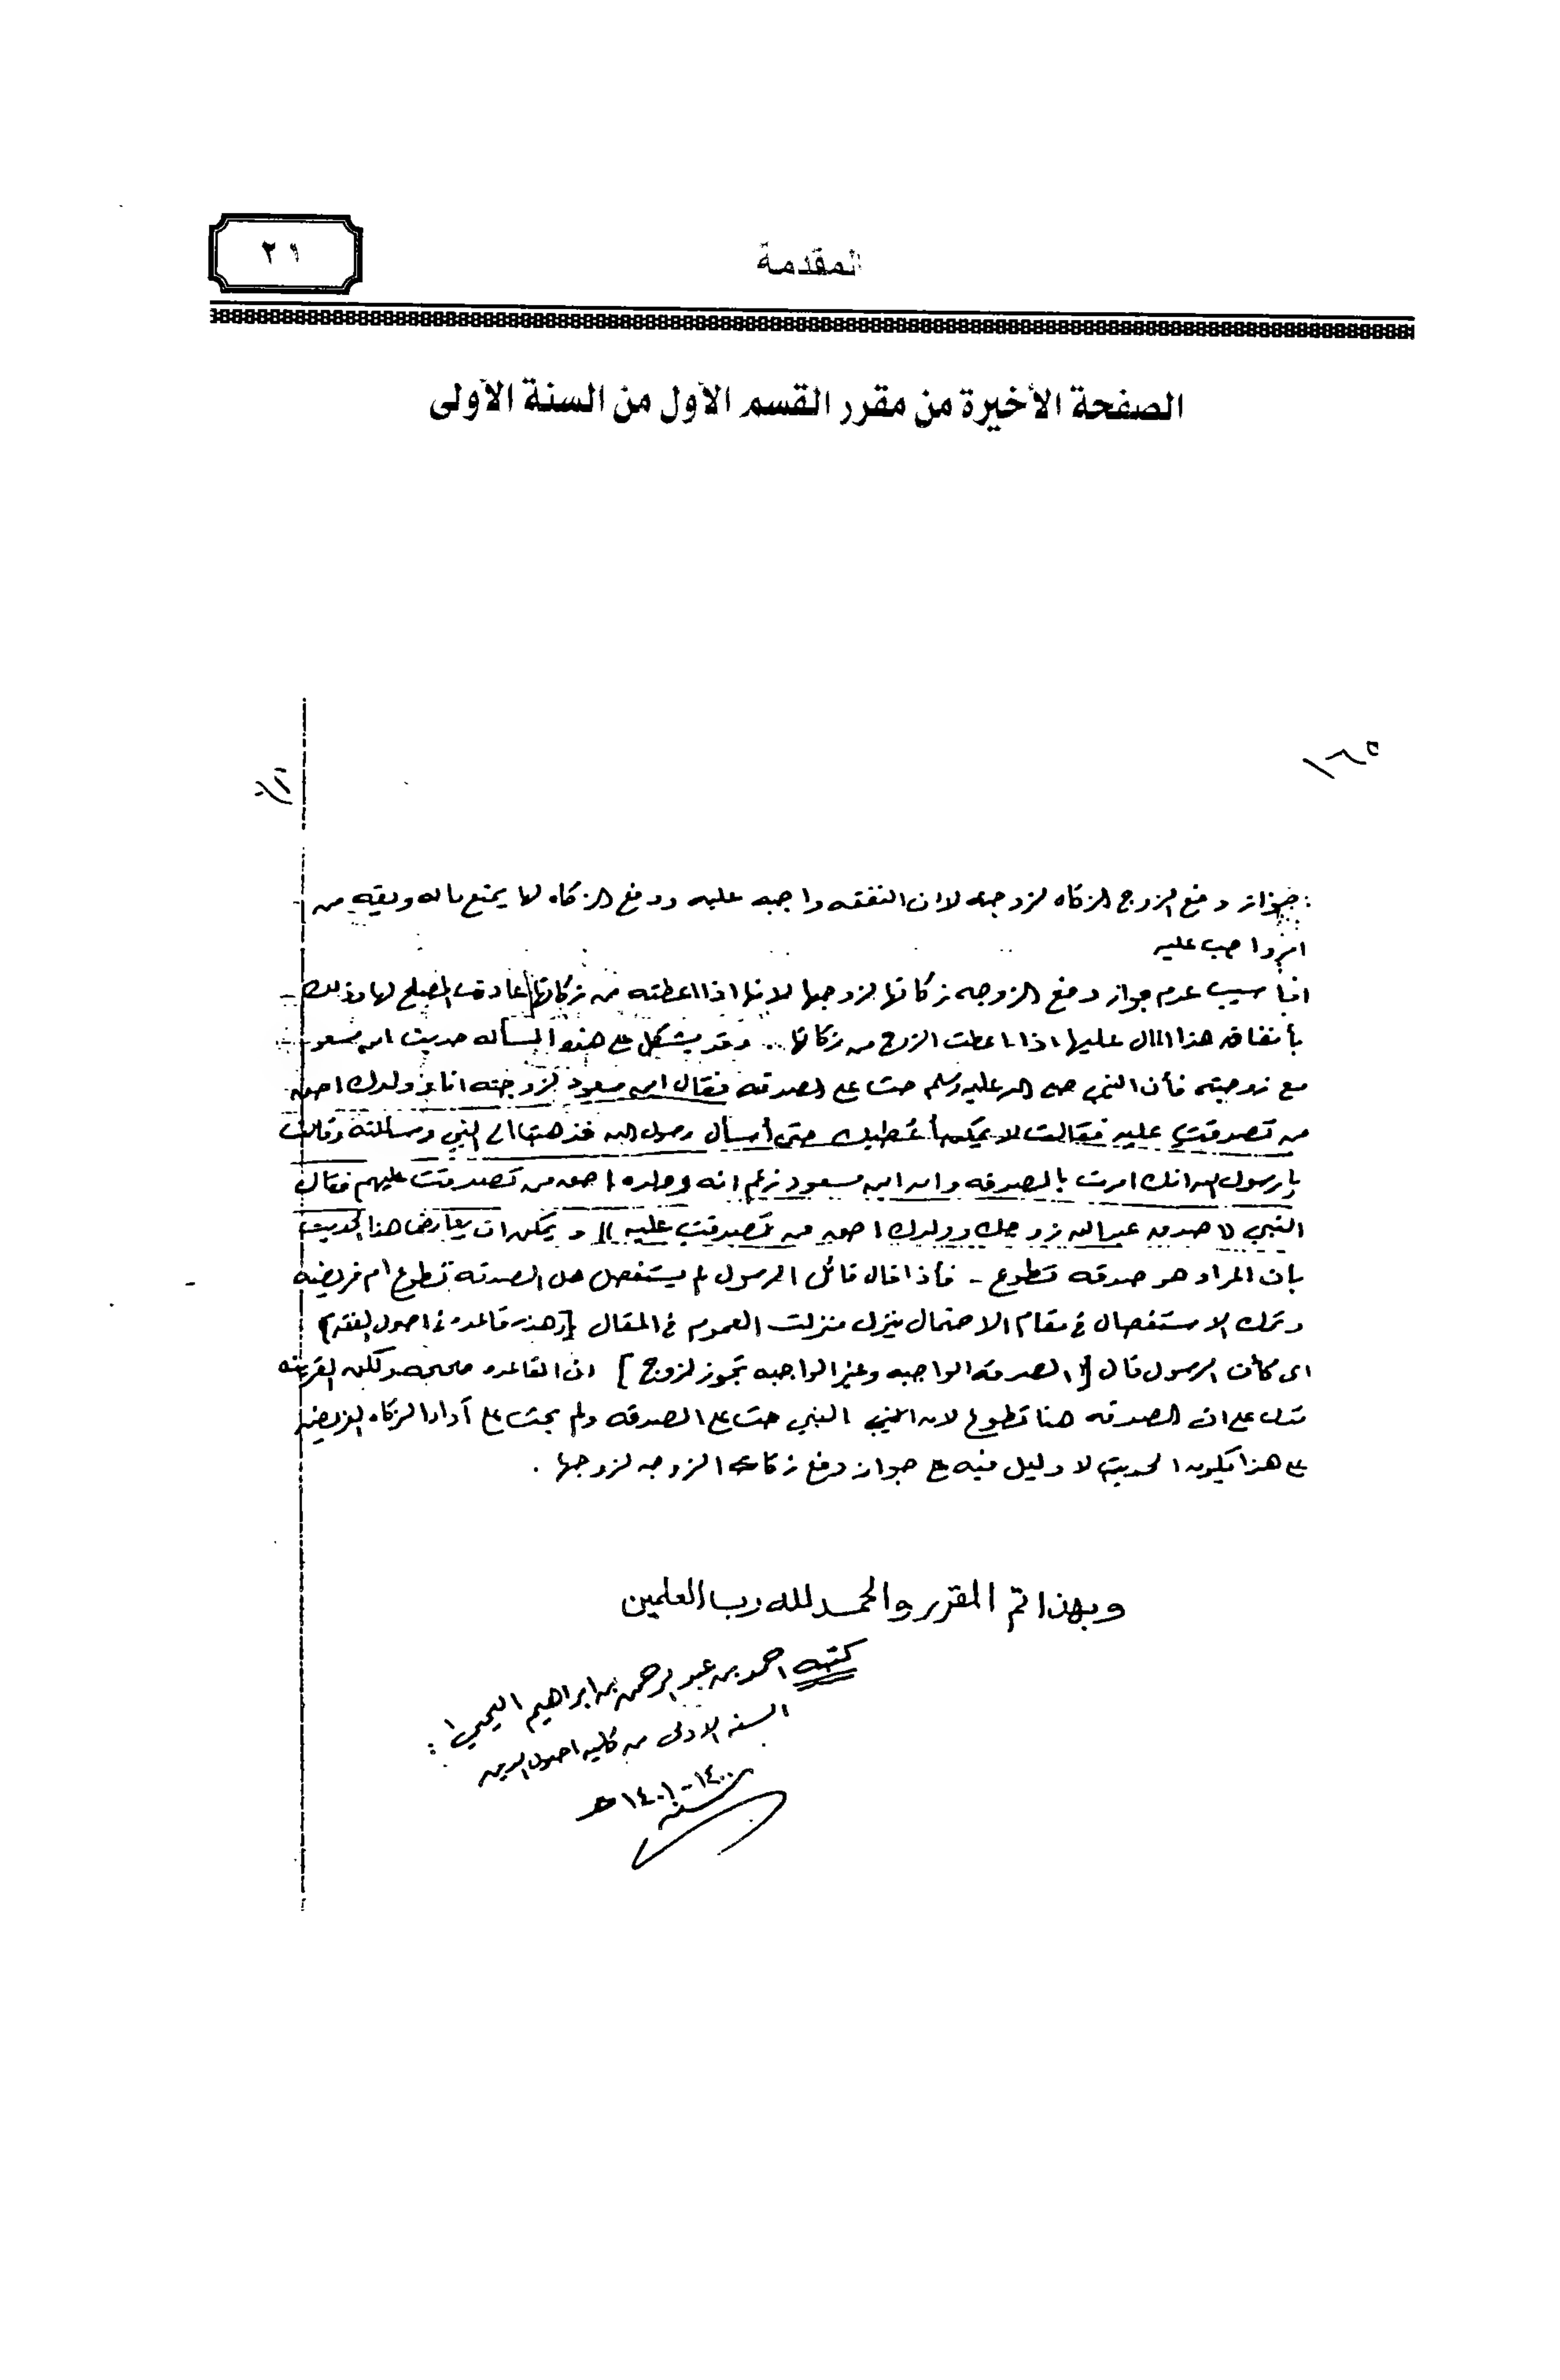 ٢٦
المقدمة
الصفحة الأخيرة من مقرر القسم الأول من السنة الأولى
١٦٥
جواز دفع الزوج الزكاه لزوجته لان النفقه واجبه عليه ودفع الزكاه لها يمنع ماله ويقيه من
الواجب عليه
اما سبب عدم جواز دفع الزوجه زكاتها لزوجها لانها اذا اعطته من زكاتها عادت المصلح لها وذلك
بأنفاق هذا المال عليها اذا اعطت الزوج من زكاتها .. وقد يشكل على هذه المسأله حديث ابن مسعود
مع زوجته فأن النبي صلى الله عليه وسلم حث على الصدقه فقال ابن مسعود لزوجته انا وولدك احق
من تصدقت عليه فقالت لا يمكن أعطيك حتى أسأل رسول الله فذهبت الى النبي وسألته وقالت
يا رسول الله انك امرت بالصدقه وان ابن مسعود زعم انه وولده احق من تصدقت عليهم فقال
النبي (( صدق عبدالله زوجك وولدك احق من تصدقت عليه )) و يمكن ان يعارض هذا الحديث
بان المراد هو صدقه تطوع - فأذا قال قائل الرسول لم يستفصل هل الصدقه تطوع ام فريضه
وترك الاستفصال في مقام الاحتمال ينزل منزلت العموم في المقال [وهذه قاعده في اصول الفقه]
اى كأن الرسول قال [ الصدقه الواجبه وغير الواجبه تجوز لزوج ] ان القاعده صحيحه ولكن القرينه
تدل على ان الصدقه هنا تطوع لان النبي حث على الصدقه ولم يحث على أداء الزكاه الفريضه
على هذا يكون الحديث لا دليل فيه على جواز دفع زكاة الزوجه لزوجها .
وبهذا تم المقرر والحمد لله رب العلمين
كتبه احمد بن عبد الرحمن بن ابراهيم اليحيى :
السنه الاولى من كليه اصول الدين
سنه ١٤٠٠-١٤٠١ هـ